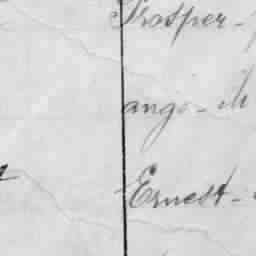 Prosper -
ange - M
Ernest -